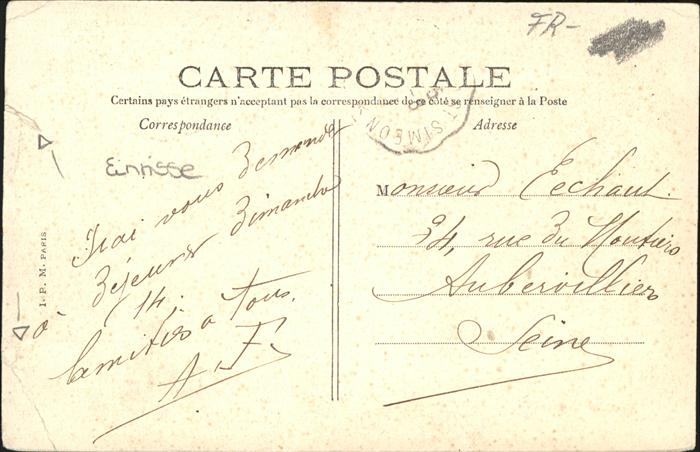 FR-
CARTE POSTALE
Certains pays étrangers n'acceptant pas la correspondance de ce côté se renseigner à la Poste
Correspondance
Adresse
ST SIMEON
I. P. M. PARIS
J'irai vous demander
à déjeuner dimanche
14.
Amitiés a tous.
A. F.
Monsieur Echaut
24, rue du Moutier
Aubervilliers
Seine